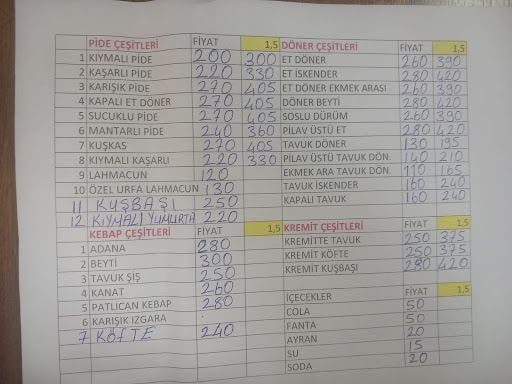 PİDE ÇEŞİTLERİ FİYAT 1,5
1 KIYMALI PİDE 200 300
2 KAŞARLI PİDE 220 330
3 KARIŞIK PİDE 270 405
4 KAPALI ET DÖNER 270 405
5 SUCUKLU PİDE 270 405
6 MANTARLI PİDE 240 360
7 KUŞKAS 270 405
8 KIYMALI KAŞARLI 220 330
9 LAHMACUN 120
10 ÖZEL URFA LAHMACUN 130
11 KUŞBAŞI 250
12 KIYMALI YUMURTA 220
KEBAP ÇEŞİTLERİ FİYAT 1,5
1 ADANA 280
2 BEYTİ 300
3 TAVUK ŞİŞ 250
4 KANAT 260
5 PATLICAN KEBAP 280
6 KARIŞIK IZGARA
7 KÖFTE 240
DÖNER ÇEŞİTLERİ FİYAT 1,5
ET DÖNER 260 390
ET İSKENDER 280 420
ET DÖNER EKMEK ARASI 260 390
DÖNER BEYTİ 280 420
SOSLU DÜRÜM 260 390
PİLAV ÜSTÜ ET 280 420
TAVUK DÖNER 130 195
PİLAV ÜSTÜ TAVUK DÖN. 140 210
EKMEK ARA TAVUK DÖN. 110 165
TAVUK İSKENDER 160 240
KAPALI TAVUK 160 240
KREMİT ÇEŞİTLERİ FİYAT 1,5
KREMİTTE TAVUK 250 375
KREMİT KÖFTE 250 375
KREMİT KUŞBAŞI 280 420
İÇECEKLER FİYAT 1,5
COLA 50
FANTA 50
AYRAN 20
SU 15
SODA 20